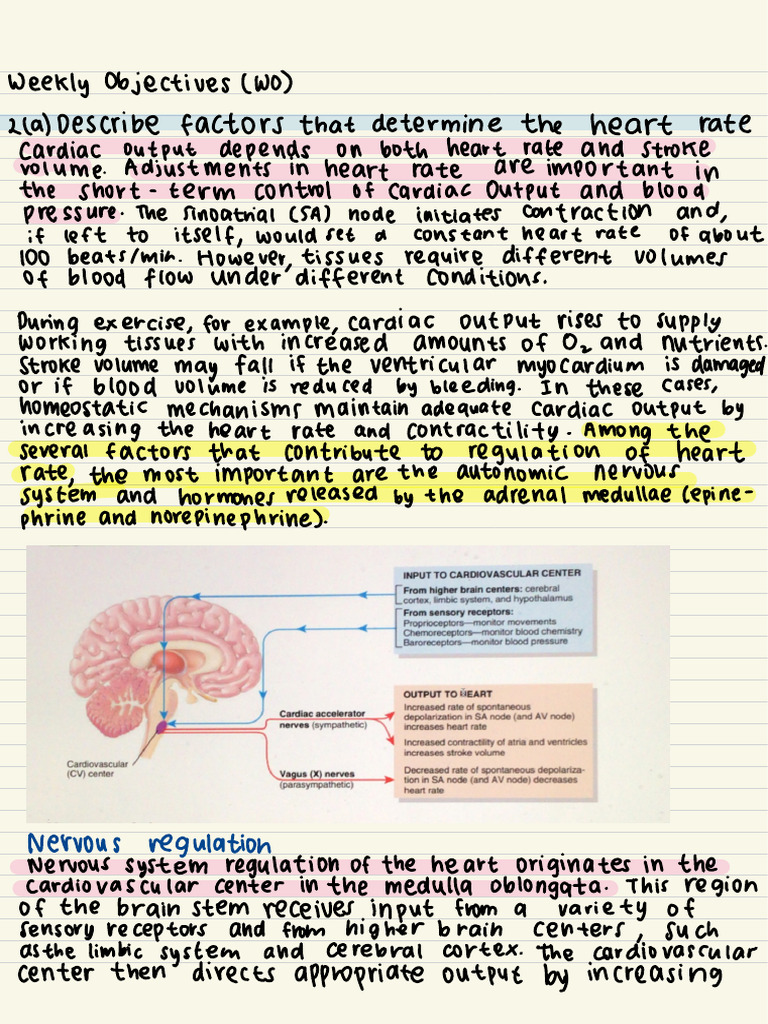 Weekly Objectives (WO)
2(a) Describe factors that determine the heart rate
Cardiac output depends on both heart rate and stroke
volume. Adjustments in heart rate are important in
the short-term control of cardiac output and blood
pressure. The sinoatrial (SA) node initiates contraction and,
if left to itself, would set a constant heart rate of about
100 beats/min. However, tissues require different volumes
of blood flow under different conditions.
During exercise, for example, cardiac output rises to supply
working tissues with increased amounts of O2 and nutrients.
Stroke volume may fall if the ventricular myocardium is damaged
or if blood volume is reduced by bleeding. In these cases,
homeostatic mechanisms maintain adequate cardiac output by
increasing the heart rate and contractility. Among the
several factors that contribute to regulation of heart
rate, the most important are the autonomic nervous
system and hormones released by the adrenal medullae (epine-
phrine and norepinephrine).
INPUT TO CARDIOVASCULAR CENTER
From higher brain centers: cerebral
cortex, limbic system, and hypothalamus
From sensory receptors:
Proprioceptors—monitor movements
Chemoreceptors—monitor blood chemistry
Baroreceptors—monitor blood pressure
OUTPUT TO HEART
Increased rate of spontaneous
depolarization in SA node (and AV node)
increases heart rate
Increased contractility of atria and ventricles
increases stroke volume
Decreased rate of spontaneous depolariza-
tion in SA node (and AV node) decreases
heart rate
Cardiac accelerator
nerves (sympathetic)
Vagus (X) nerves
(parasympathetic)
Cardiovascular
(CV) center
Nervous regulation
Nervous system regulation of the heart originates in the
cardiovascular center in the medulla oblongata. This region
of the brain stem receives input from a variety of
sensory receptors and from higher brain centers, such
as the limbic system and cerebral cortex. The cardiovascular
center then directs appropriate output by increasing